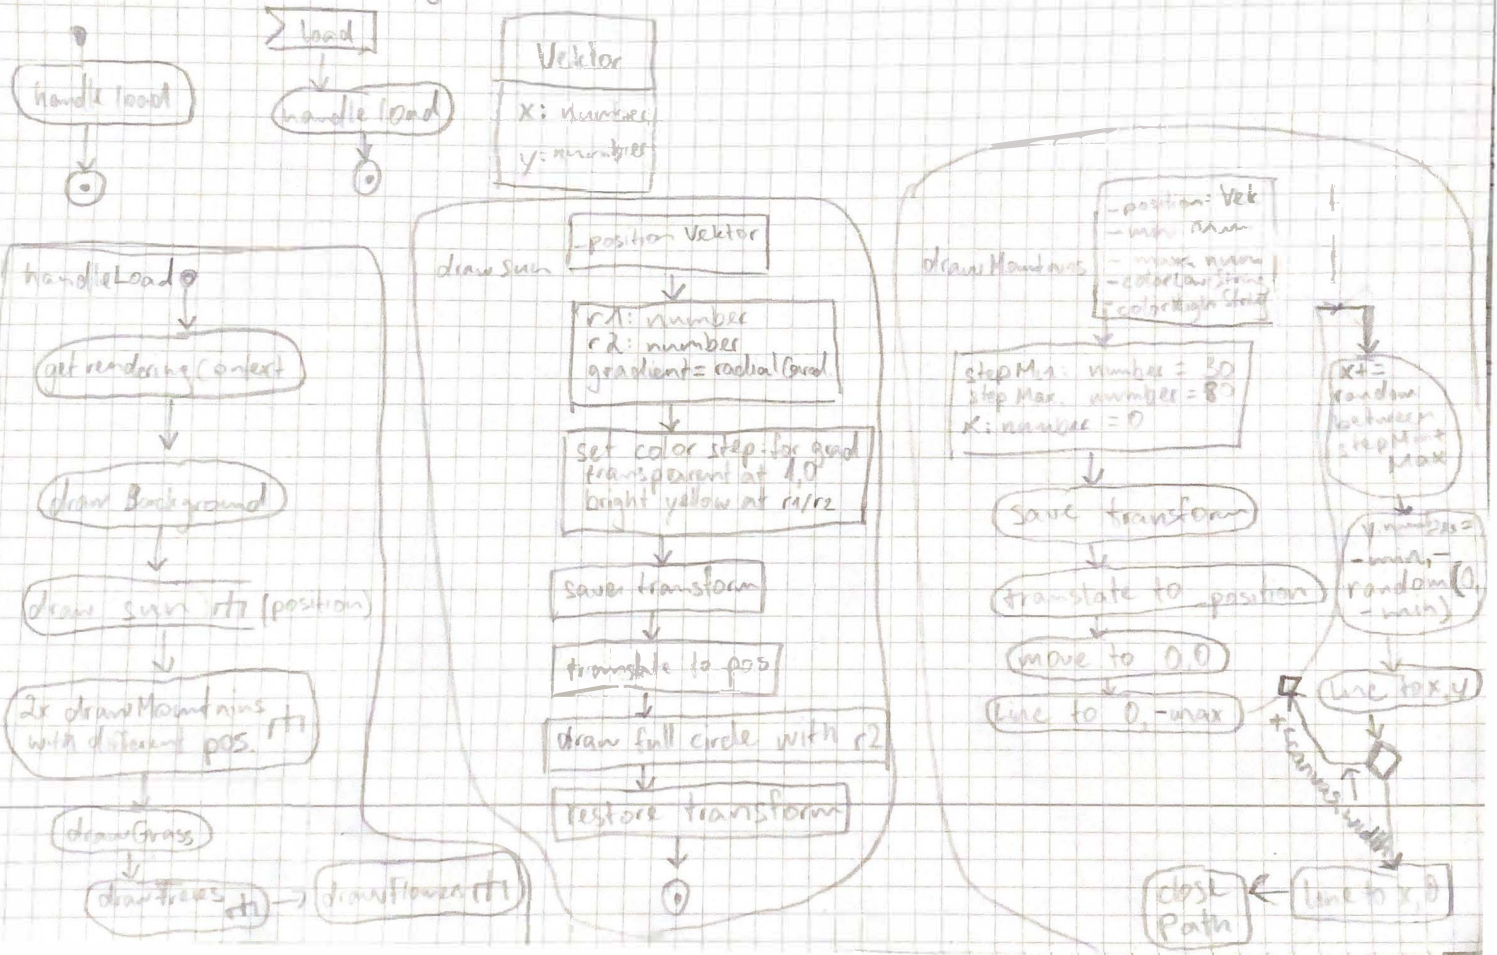 handle load
load
handle load
Vektor
x: number
y: number
handleLoad
get rendering Context
draw Background
draw sun (position)
2x drawMountains
with different pos.
drawGrass
drawTrees
drawFlowers
draw sun
_position Vektor
r1: number
r2: number
gradient = radialGrad.
set color step for grad
transparent at 1,0
bright yellow at r1/r2
save transform
translate to pos
draw full circle with r2
restore transform
drawMountains
_position: Vek
- min num
- max num
- colorLow String
- colorHigh String
stepMin: number = 30
stepMax: number = 80
x: number = 0
save transform
translate to _position
move to 0,0
line to 0, -max
x+=
random
between
stepMin+
Max
y number=
-min, -
random(0,
-min)
line to x,y
x<canvas.width
line to x,0
close
Path